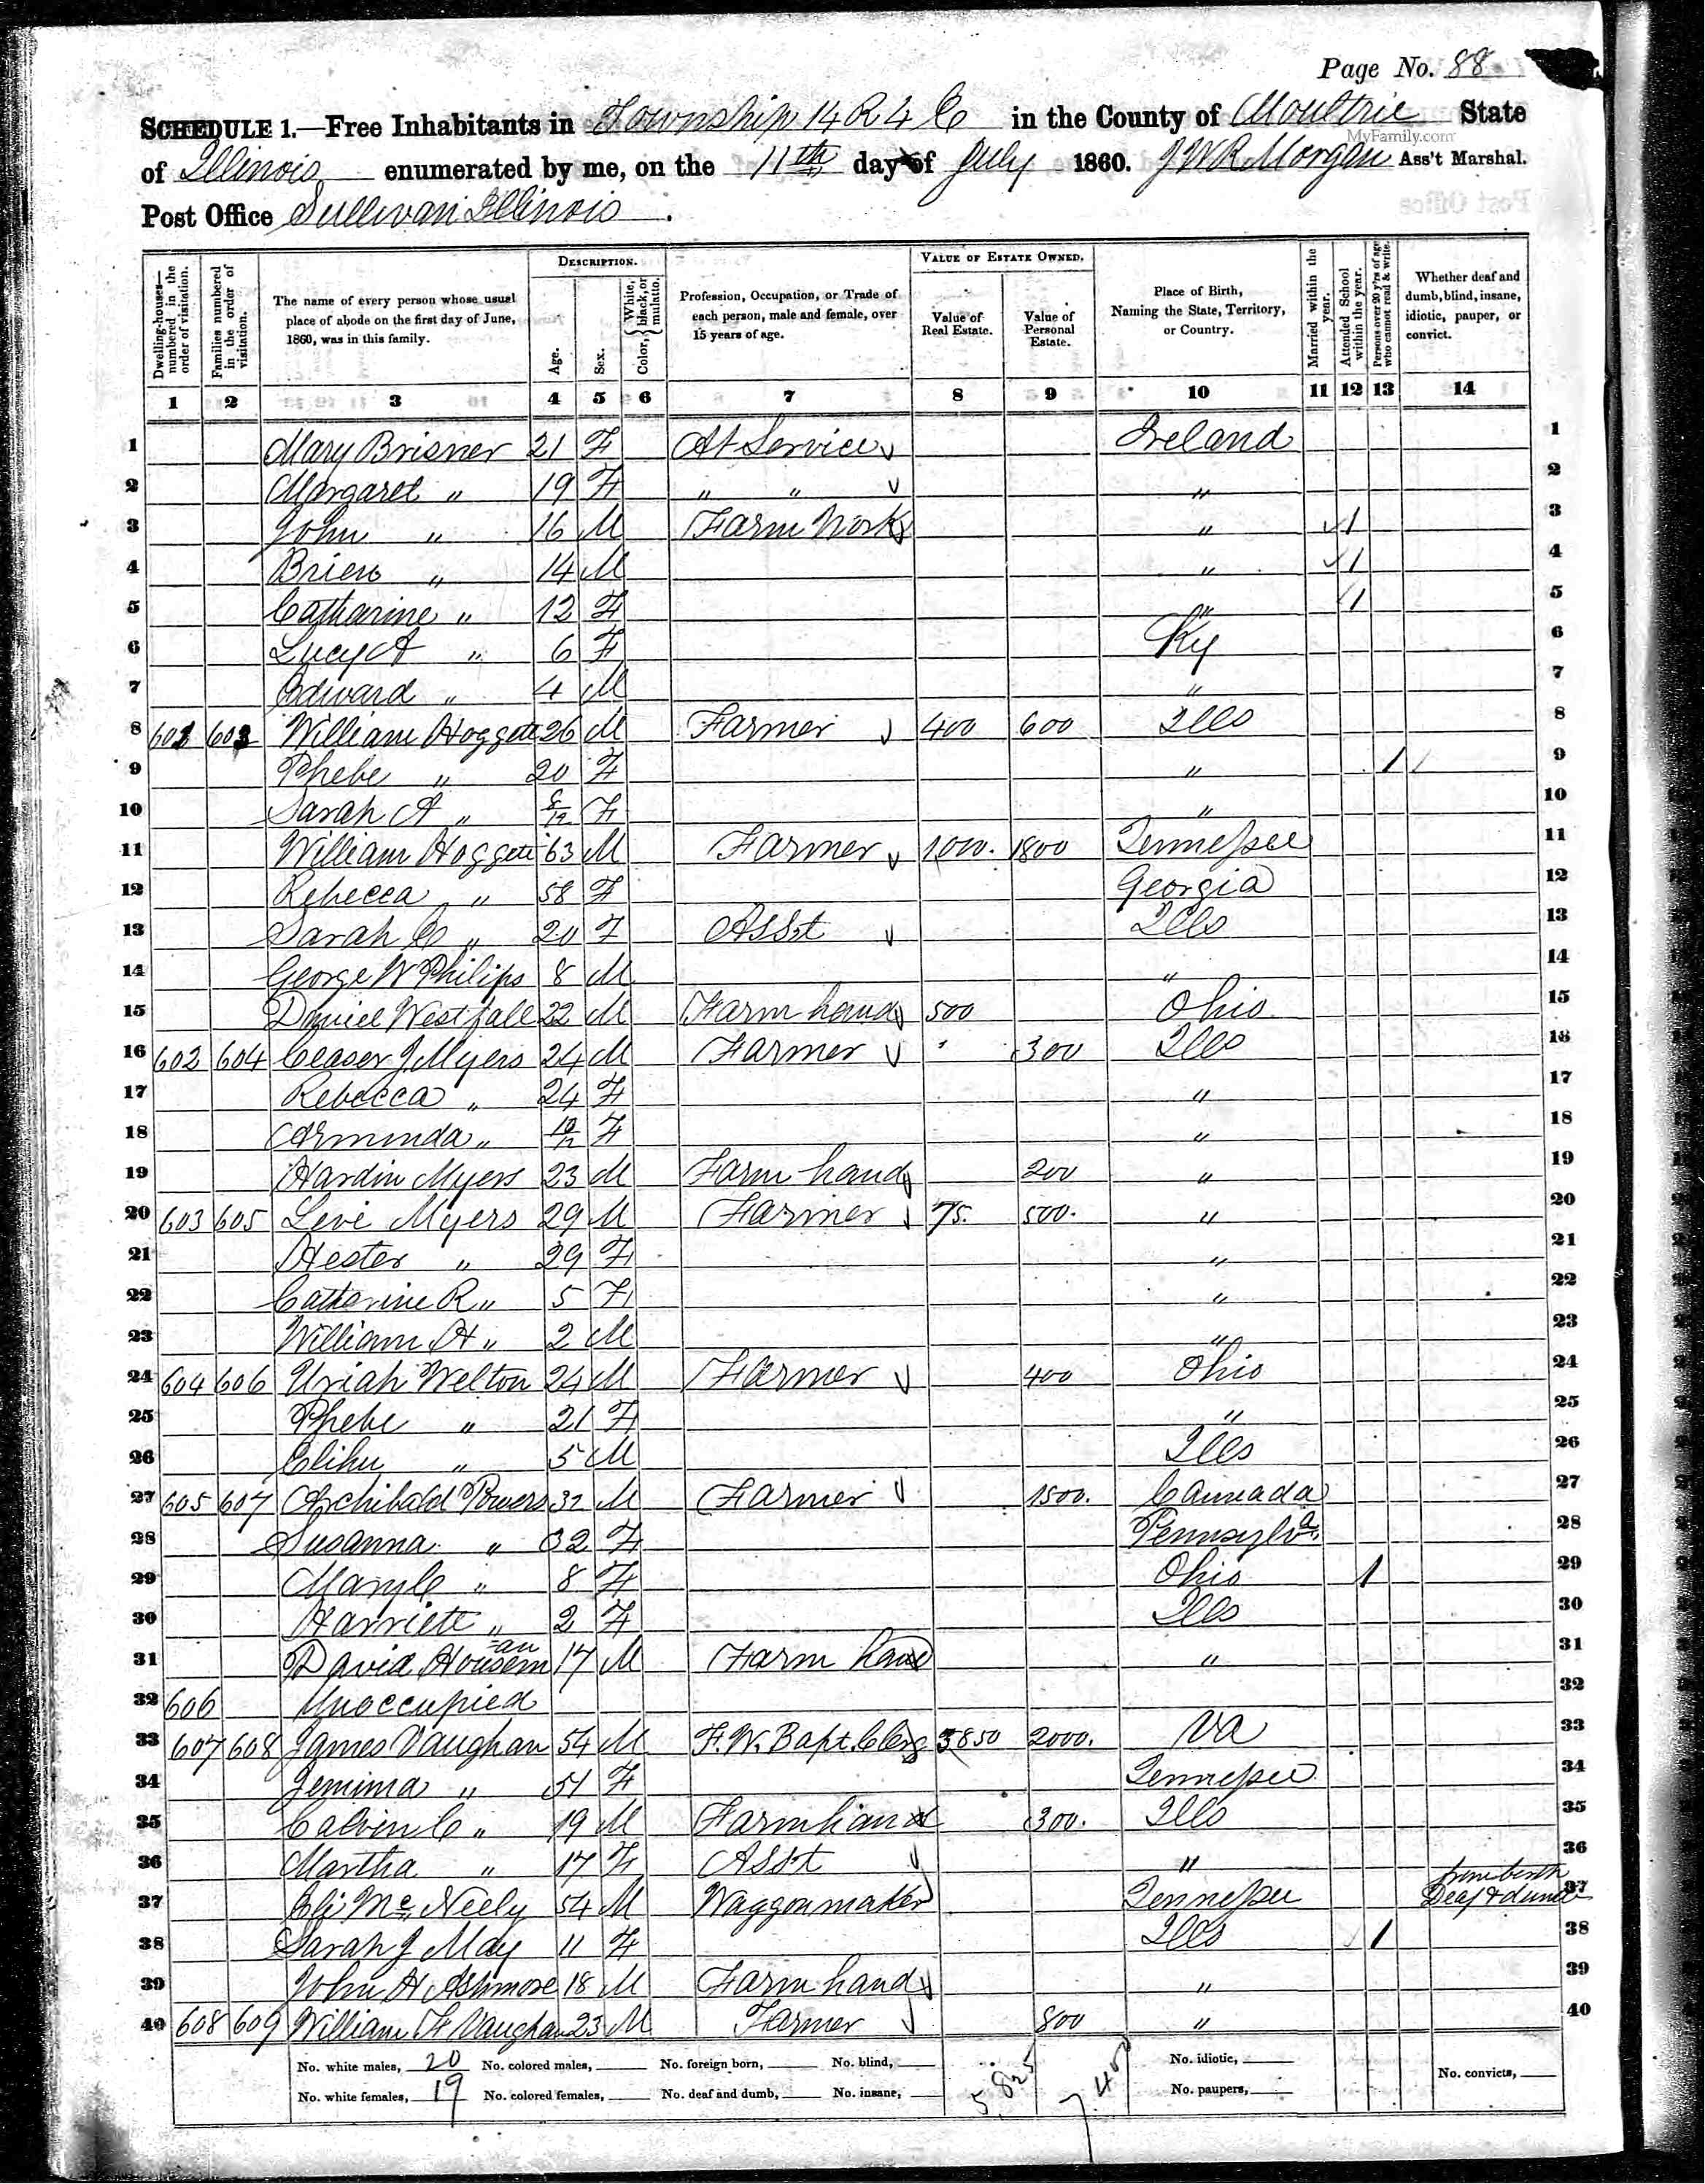 Page No. 88
SCHEDULE 1.—Free Inhabitants in Township 14 R 4 E in the County of Moultrie State
MyFamily.com
of Illinois enumerated by me, on the 11th day of July 1860. J W R Morgan Ass't Marshal.
Post Office Sullivan Illinois.
Dwelling-houses—numbered in the order of visitation.
Families numbered in the order of visitation.
The name of every person whose usual place of abode on the first day of June, 1860, was in this family.
DESCRIPTION.
Age.
Sex.
Color, { White, black, or mulatto.
Profession, Occupation, or Trade of each person, male and female, over 15 years of age.
VALUE OF ESTATE OWNED.
Value of Real Estate.
Value of Personal Estate.
Place of Birth, Naming the State, Territory, or Country.
Married within the year.
Attended School within the year.
Persons over 20 y'rs of age who cannot read & write.
Whether deaf and dumb, blind, insane, idiotic, pauper, or convict.
1 2 3 4 5 6 7 8 9 10 11 12 13 14
1 Mary Brisner 21 F At Service Ireland 1
2 Margaret " 19 F " " " 2
3 John " 16 M Farm Work " 1 3
4 Brien " 14 M " 1 4
5 Catharine " 12 F " 1 5
6 Lucy A " 6 F Ky 6
7 Edward " 4 M " 7
8 601 603 William Hoggett 26 M Farmer 400 600 Ills 8
9 Phebe " 20 F " 1 9
10 Sarah A " 8/12 F " 10
11 William Hoggett 63 M Farmer 1000. 1800 Tennessee 11
12 Rebecca " 58 F Georgia 12
13 Sarah E " 20 F Asst Ills 13
14 George W Philips 8 M " 14
15 Daniel Westfall 22 M Farm hand 500 Ohio 15
16 602 604 Ceaser J Myers 24 M Farmer " 300 Ills 16
17 Rebecca " 24 F " 17
18 Arminda " 10/12 F " 18
19 Hardin Myers 23 M Farm hand 200 " 19
20 603 605 Levi Myers 29 M Farmer 75. 500. " 20
21 Hester " 29 F " 21
22 Catherine R " 5 F " 22
23 William H " 2 M " 23
24 604 606 Uriah Welton 24 M Farmer 400 Ohio 24
25 Phebe " 21 F " 25
26 Elihu " 5 M Ills 26
27 605 607 Archibald Powers 32 M Farmer 1500. Cannada 27
28 Susanna " 32 F Pennsylva 28
29 Mary E " 8 F Ohio 1 29
30 Harriett " 2 F Ills 30
31 David Houseman 17 M Farm hand " 31
32 606 Unoccupied 32
33 607 608 James Vaughan 54 M F. W. Bapt. Clerg 3850 2000. Va 33
34 Jemima " 51 F Tennessee 34
35 Calvin C " 19 M Farm hand 300. Ills 35
36 Martha " 17 F Asst " 36
37 Eli McNeely 54 M Waggon maker Tennessee from birth Deaf & dumb 37
38 Sarah J May 11 F Ills 1 38
39 John H Ashmore 18 M Farm hand " 39
40 608 609 William F Vaughan 23 M Farmer 800 " 40
No. white males, 20 No. colored males, No. foreign born, No. blind, 5,825 7,400 No. idiotic,
No. white females, 19 No. colored females, No. deaf and dumb, No. insane, No. paupers, No. convicts,